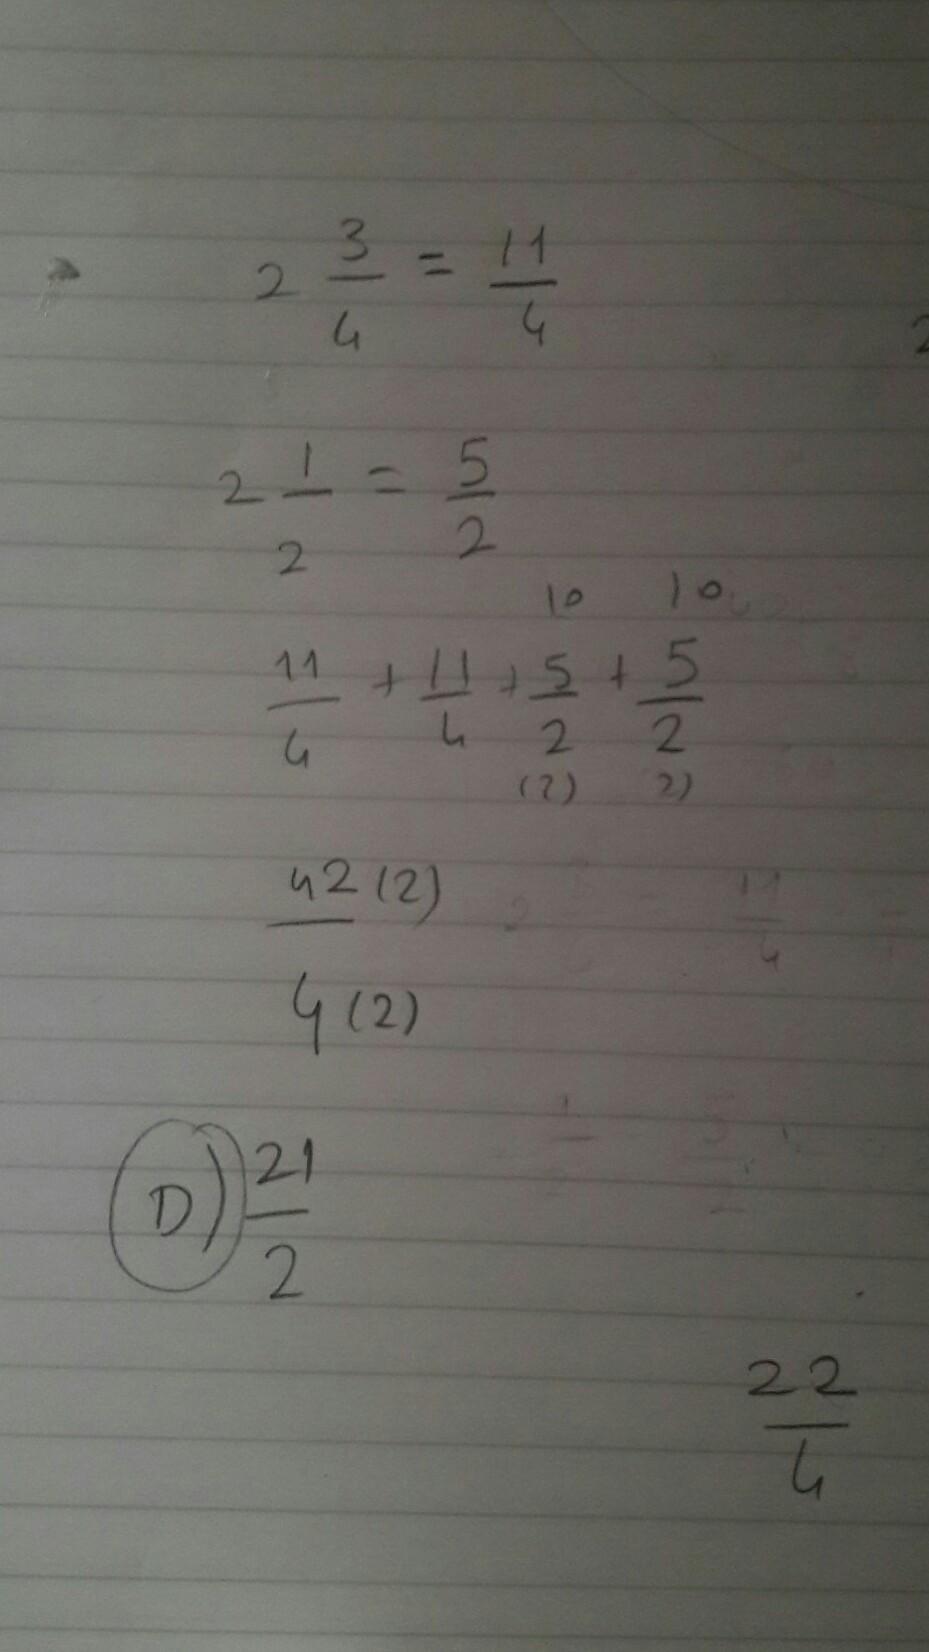 2 3/4 = 11/4
2 1/2 = 5/2
10 10
11/4 + 11/4 + 5/2 + 5/2
(2) 2)
42 (2)
4 (2)
D) 21/2
22/4